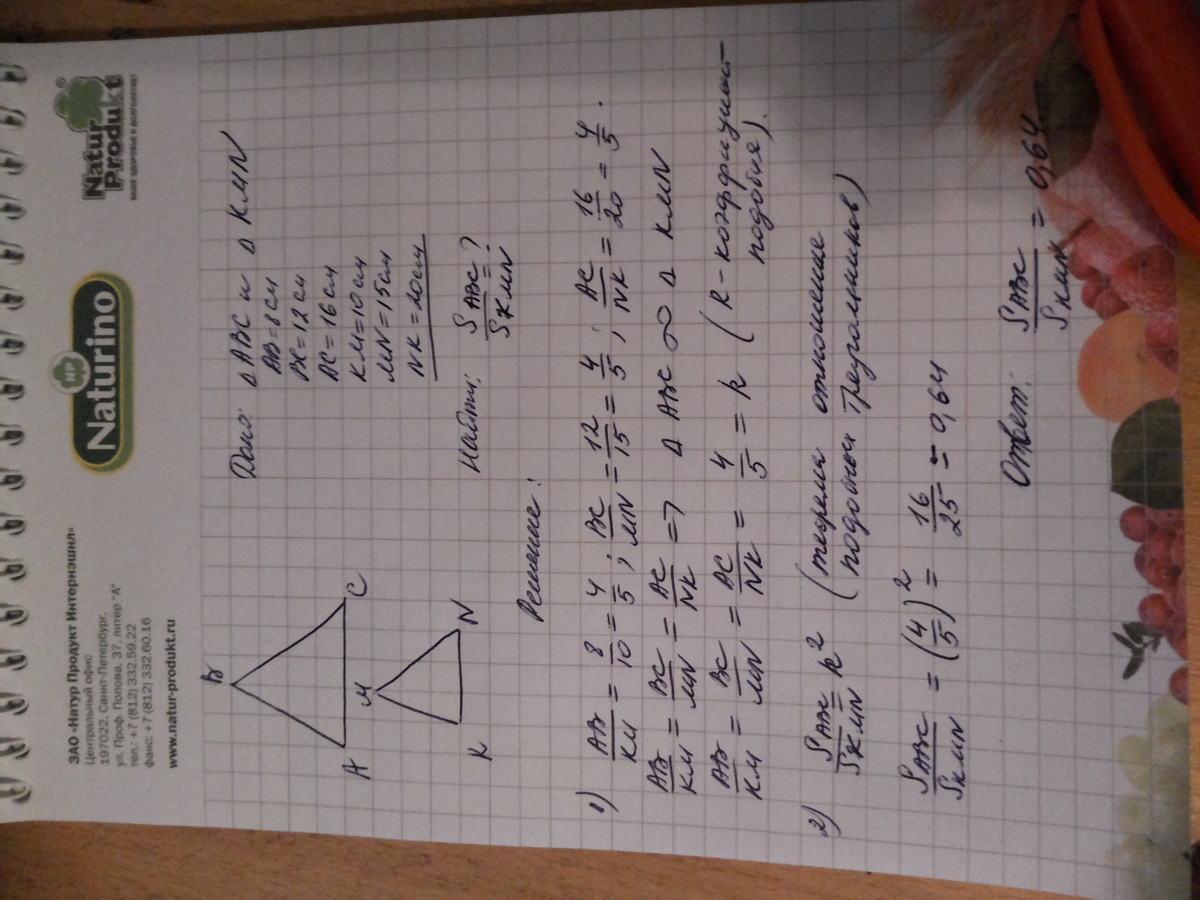 ЗАО «Натур Продукт Интернэшнл»
Центральный офис
197022, Санкт-Петербург,
ул. Проф. Попова, 37, литер "А"
тел.: +7 (812) 332.59.22
факс: +7 (812) 332.60.16
www.natur-produkt.ru
NP
Naturino
Natur
Produkt
ВАШЕ ЗДОРОВЬЕ И ДОЛГОЛЕТИЕ
B
A
C
M
K
N
Дано: Δ ABC и Δ KMN
AB = 8 см
BC = 12 см
AC = 16 см
KM = 10 см
MN = 15 см
NK = 20 см
Найти: S ABC / S KMN = ?
Решение:
1) AB/KM = 8/10 = 4/5; BC/MN = 12/15 = 4/5; AC/NK = 16/20 = 4/5.
AB/KM = BC/MN = AC/NK => Δ ABC ∞ Δ KMN
AB/KM = BC/MN = AC/NK = 4/5 = k (k - коэффициент
подобия).
2) S ABC / S KMN = k² (теорема отношение
подобных треугольников)
S ABC / S KMN = (4/5)² = 16/25 = 0,64
Ответ: S ABC / S KMN = 0,64.